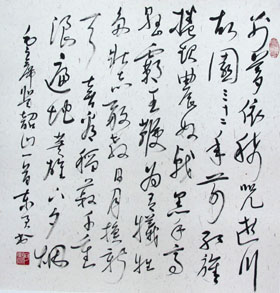 别梦依稀咒逝川
故園三十二年前红旗
捲起農奴戟黑手高
懸霸主鞭为有犧牲
多壮志敢教日月換新
天喜看稻菽千重
浪遍地英雄下夕烟
韶山一首